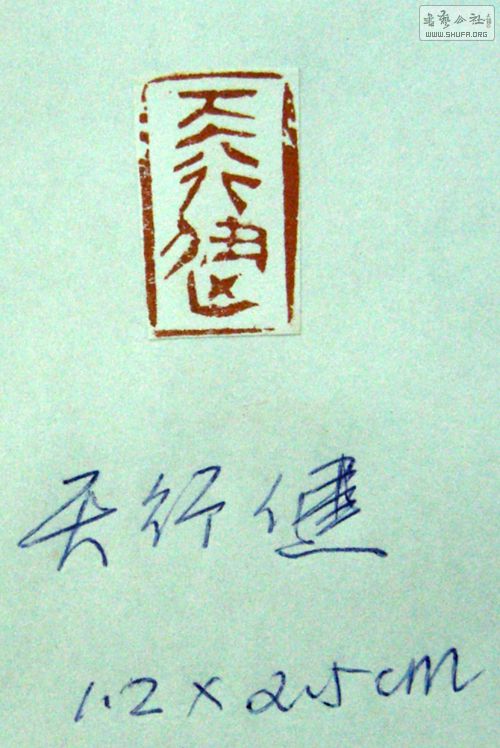 書藝公社
WWW.SHUFA.ORG
天行健
天行健
1.2×2.5cm